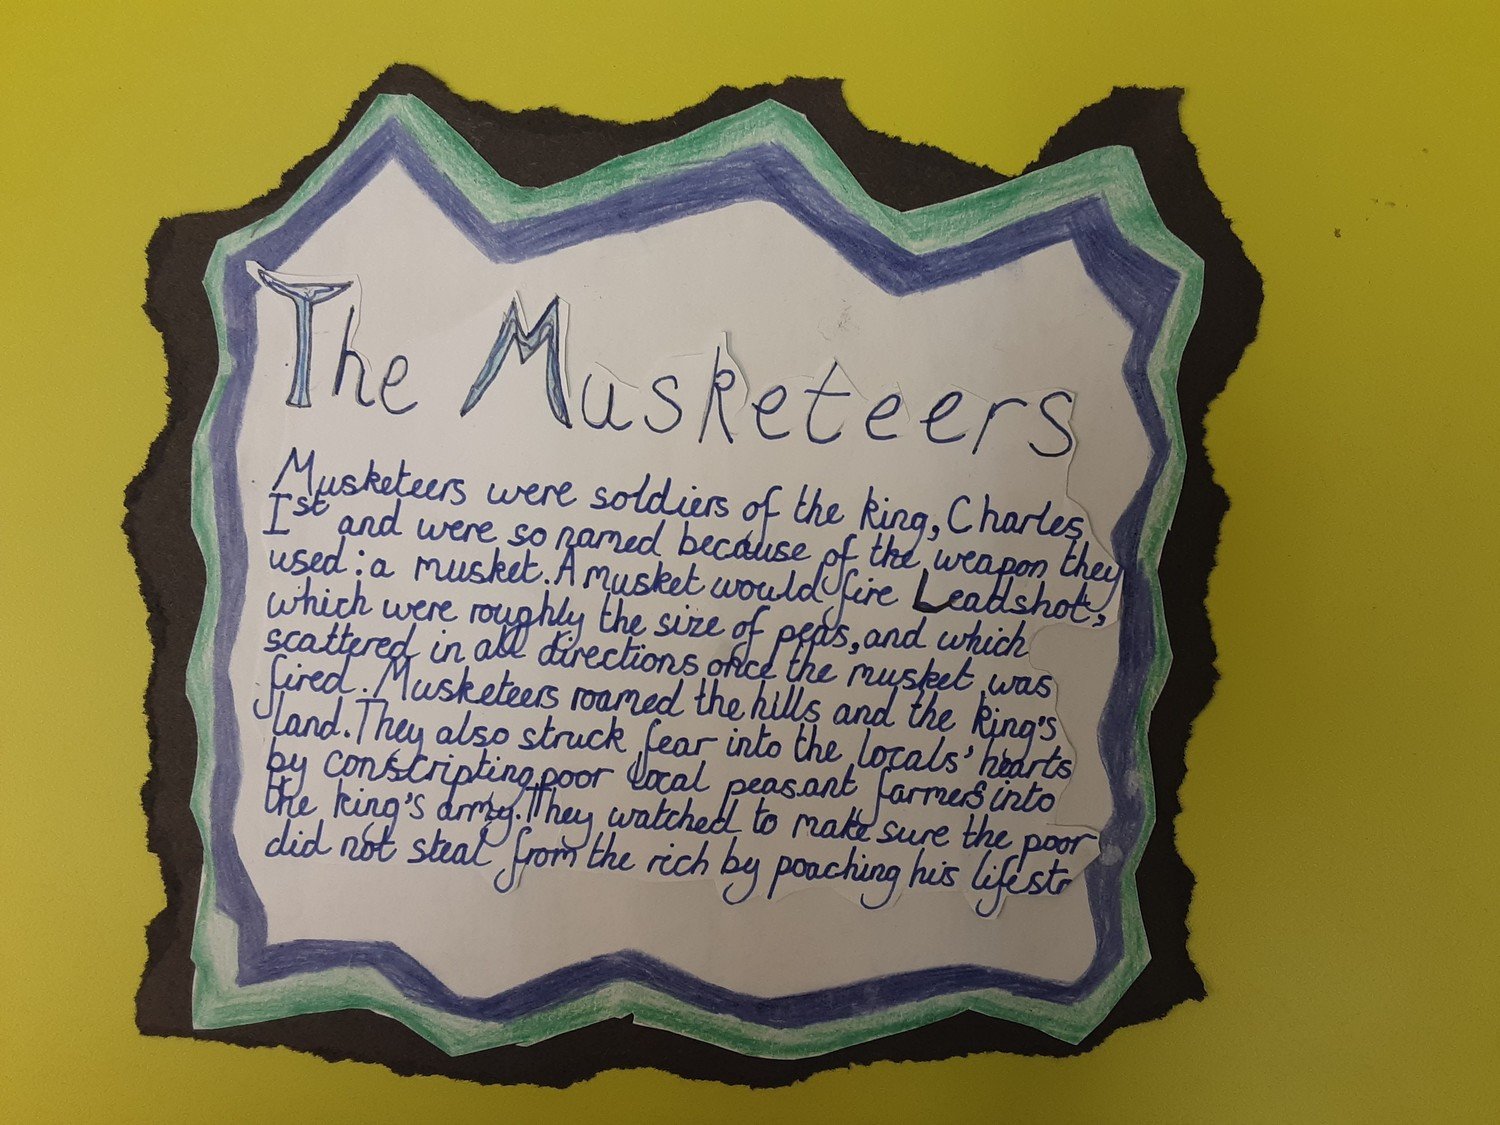 The Musketeers
Musketeers were soldiers of the king, Charles
Ist and were so named because of the weapon they
used: a musket. A musket would fire Leadshot,
which were roughly the size of peas, and which
scattered in all directions once the musket was
fired. Musketeers roamed the hills and the king's
land. They also struck fear into the locals' hearts
by conscripting poor local peasant farmers into
the king's army. They watched to make sure the poor
did not steal from the rich by poaching his lifestr